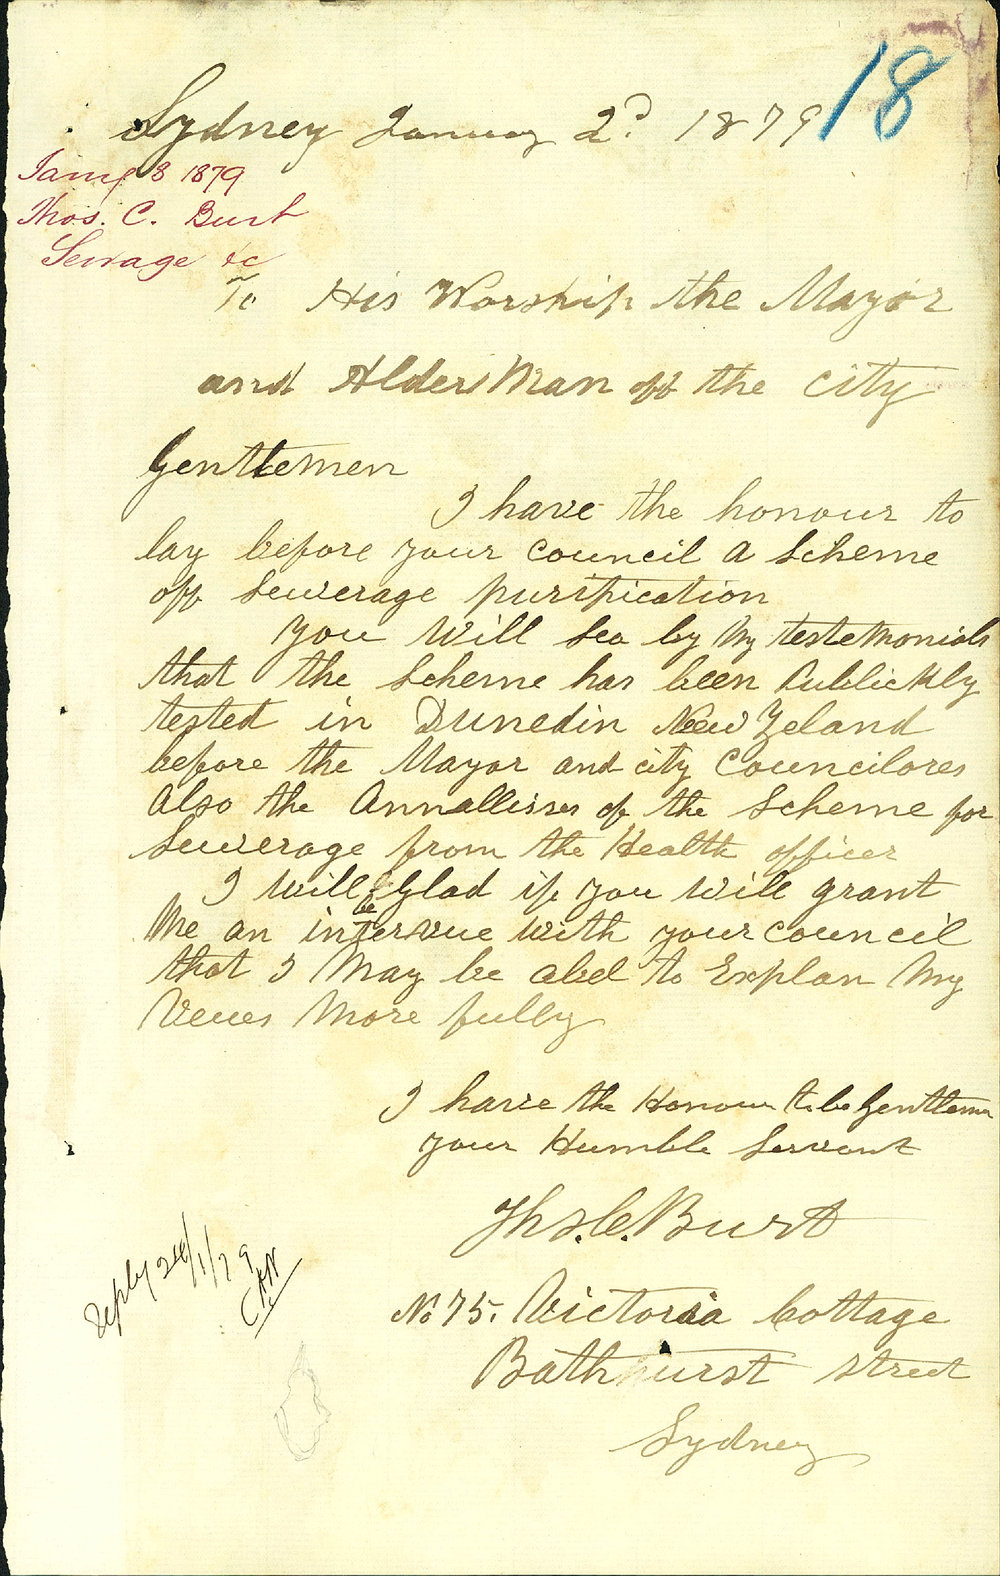 18
Sydney January 2d. 1879
Jany 8 1879
Thos. C. Burt
Sewage &c
To His Worship the Mayor
and AlderMan off the city
Gentlemen
I have the honour to
lay before your council A Scheme
off Sewerage purification
you will See by My testemonials
that the Scheme has been Publickly
tested in Dunedin New Zeland
before the Mayor and city Councilores
Also the Annallisses of the Scheme for
Sewerage from the Health officer
I will be Glad if you will grant
Me an intervue with your council
that I May be abel to Explan My
Veues More fully
I have the Honour to be Gentlemen
your Humble Servant
Ths. C. Burt
No 75. Victoria Cottage
Bathhurst street
Sydney
Reply 24/1/79